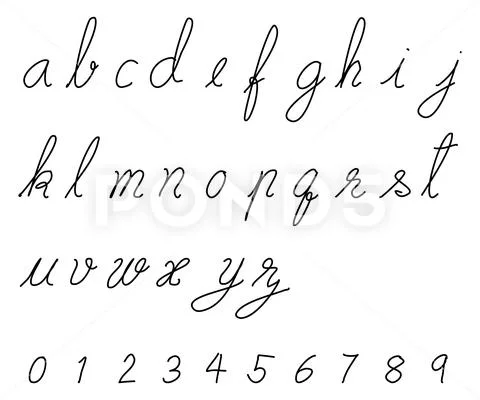 a b c d e f g h i j
k l m n o p q r s t
u v w x y z
0 1 2 3 4 5 6 7 8 9
POND5